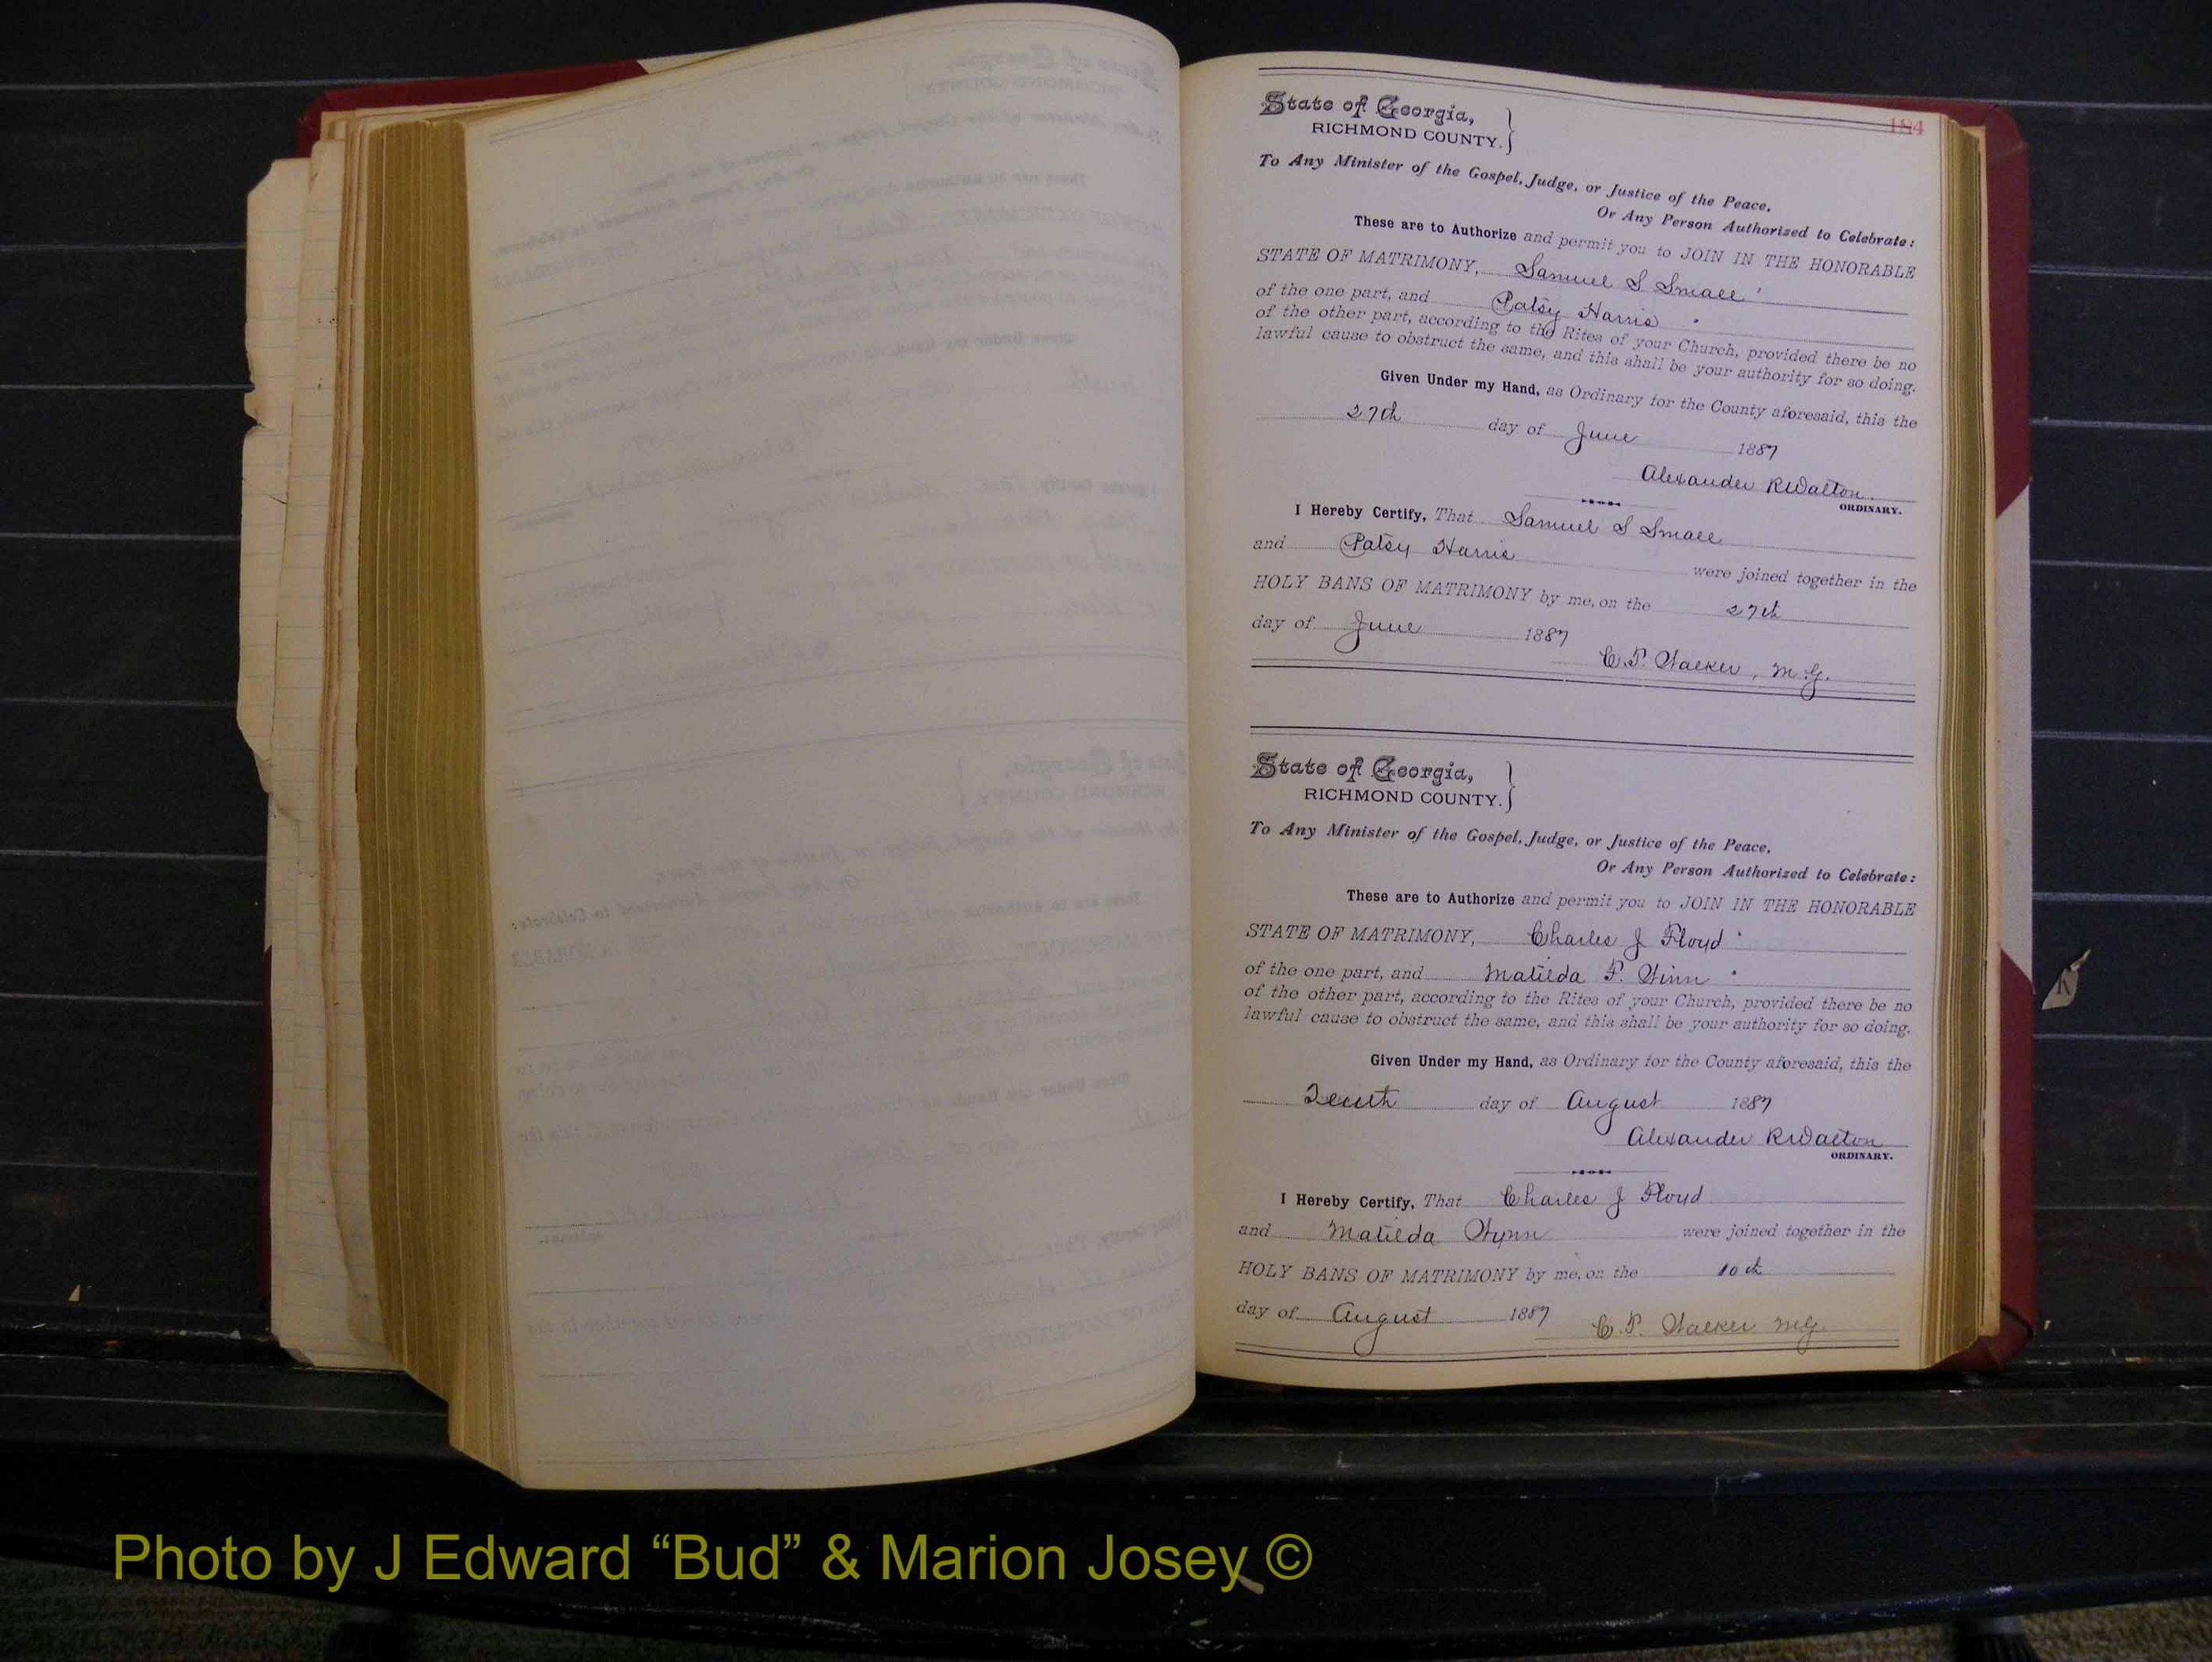 184
State of Georgia,
RICHMOND COUNTY.
To Any Minister of the Gospel, Judge, or Justice of the Peace,
Or Any Person Authorized to Celebrate:
These are to Authorize and permit you to JOIN IN THE HONORABLE
STATE OF MATRIMONY, Samuel S Small
of the one part, and Patsy Harris
of the other part, according to the Rites of your Church, provided there be no
lawful cause to obstruct the same, and this shall be your authority for so doing.
Given Under my Hand, as Ordinary for the County aforesaid, this the
27th day of June 1887
Alexander R Walton.
ORDINARY.
I Hereby Certify, That Samuel S Small
and Patsy Harris were joined together in the
HOLY BANS OF MATRIMONY by me, on the 27th
day of June 1887
C. T. Walker, M.G.
State of Georgia,
RICHMOND COUNTY.
To Any Minister of the Gospel, Judge, or Justice of the Peace,
Or Any Person Authorized to Celebrate:
These are to Authorize and permit you to JOIN IN THE HONORABLE
STATE OF MATRIMONY, Charles J Floyd
of the one part, and Matilda F. Winn
of the other part, according to the Rites of your Church, provided there be no
lawful cause to obstruct the same, and this shall be your authority for so doing.
Given Under my Hand, as Ordinary for the County aforesaid, this the
Tenth day of August 1887
Alexander R Walton
ORDINARY.
I Hereby Certify, That Charles J Floyd
and Matilda Wynn were joined together in the
HOLY BANS OF MATRIMONY by me, on the 10th
day of August 1887
C. T. Walker M.G.
Photo by J Edward “Bud” & Marion Josey ©